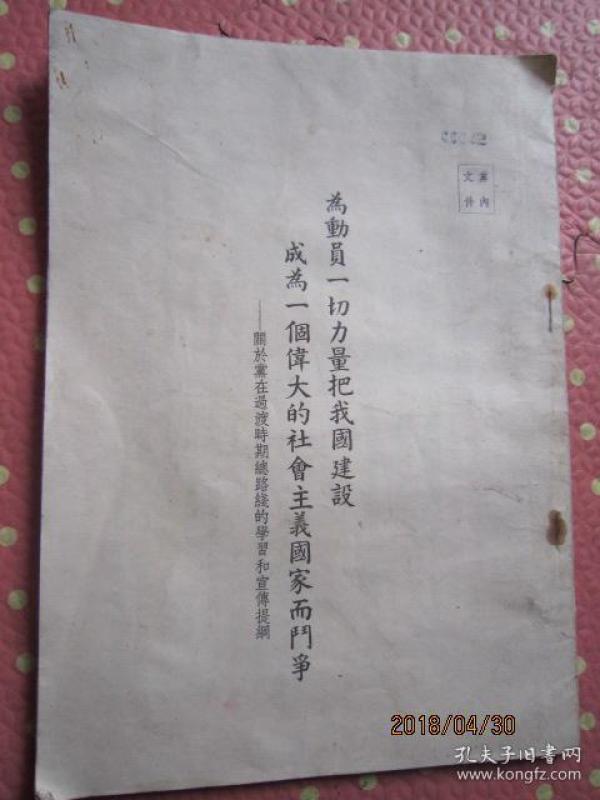 黨內
文件
為動員一切力量把我國建設
成為一個偉大的社會主義國家而鬥爭
——關於黨在過渡時期總路綫的學習和宣傳提綱
2018/04/30
孔夫子旧書网
www.kongfz.com